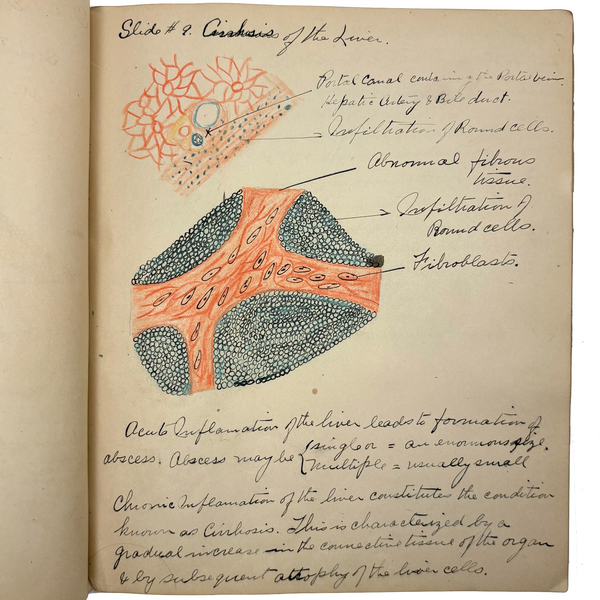 Slide # 9. Cirrhosis of the Liver.
Portal Canal containing the Portal vein.
Hepatic Artery & Bile duct.
Infiltration of Round cells.
Abnormal fibrous
tissue.
Infiltration of
Round cells.
Fibroblasts.
Acute Inflamation of the liver leads to formation of
abscess. Abscess may be { single or = an enormous size.
multiple = usually small
Chronic Inflamation of the liver constitutes the condition
known as Cirrhosis. This is characterized by a
gradual increase in the connective tissue of the organ
& by subsequent attrophy of the liver cells.